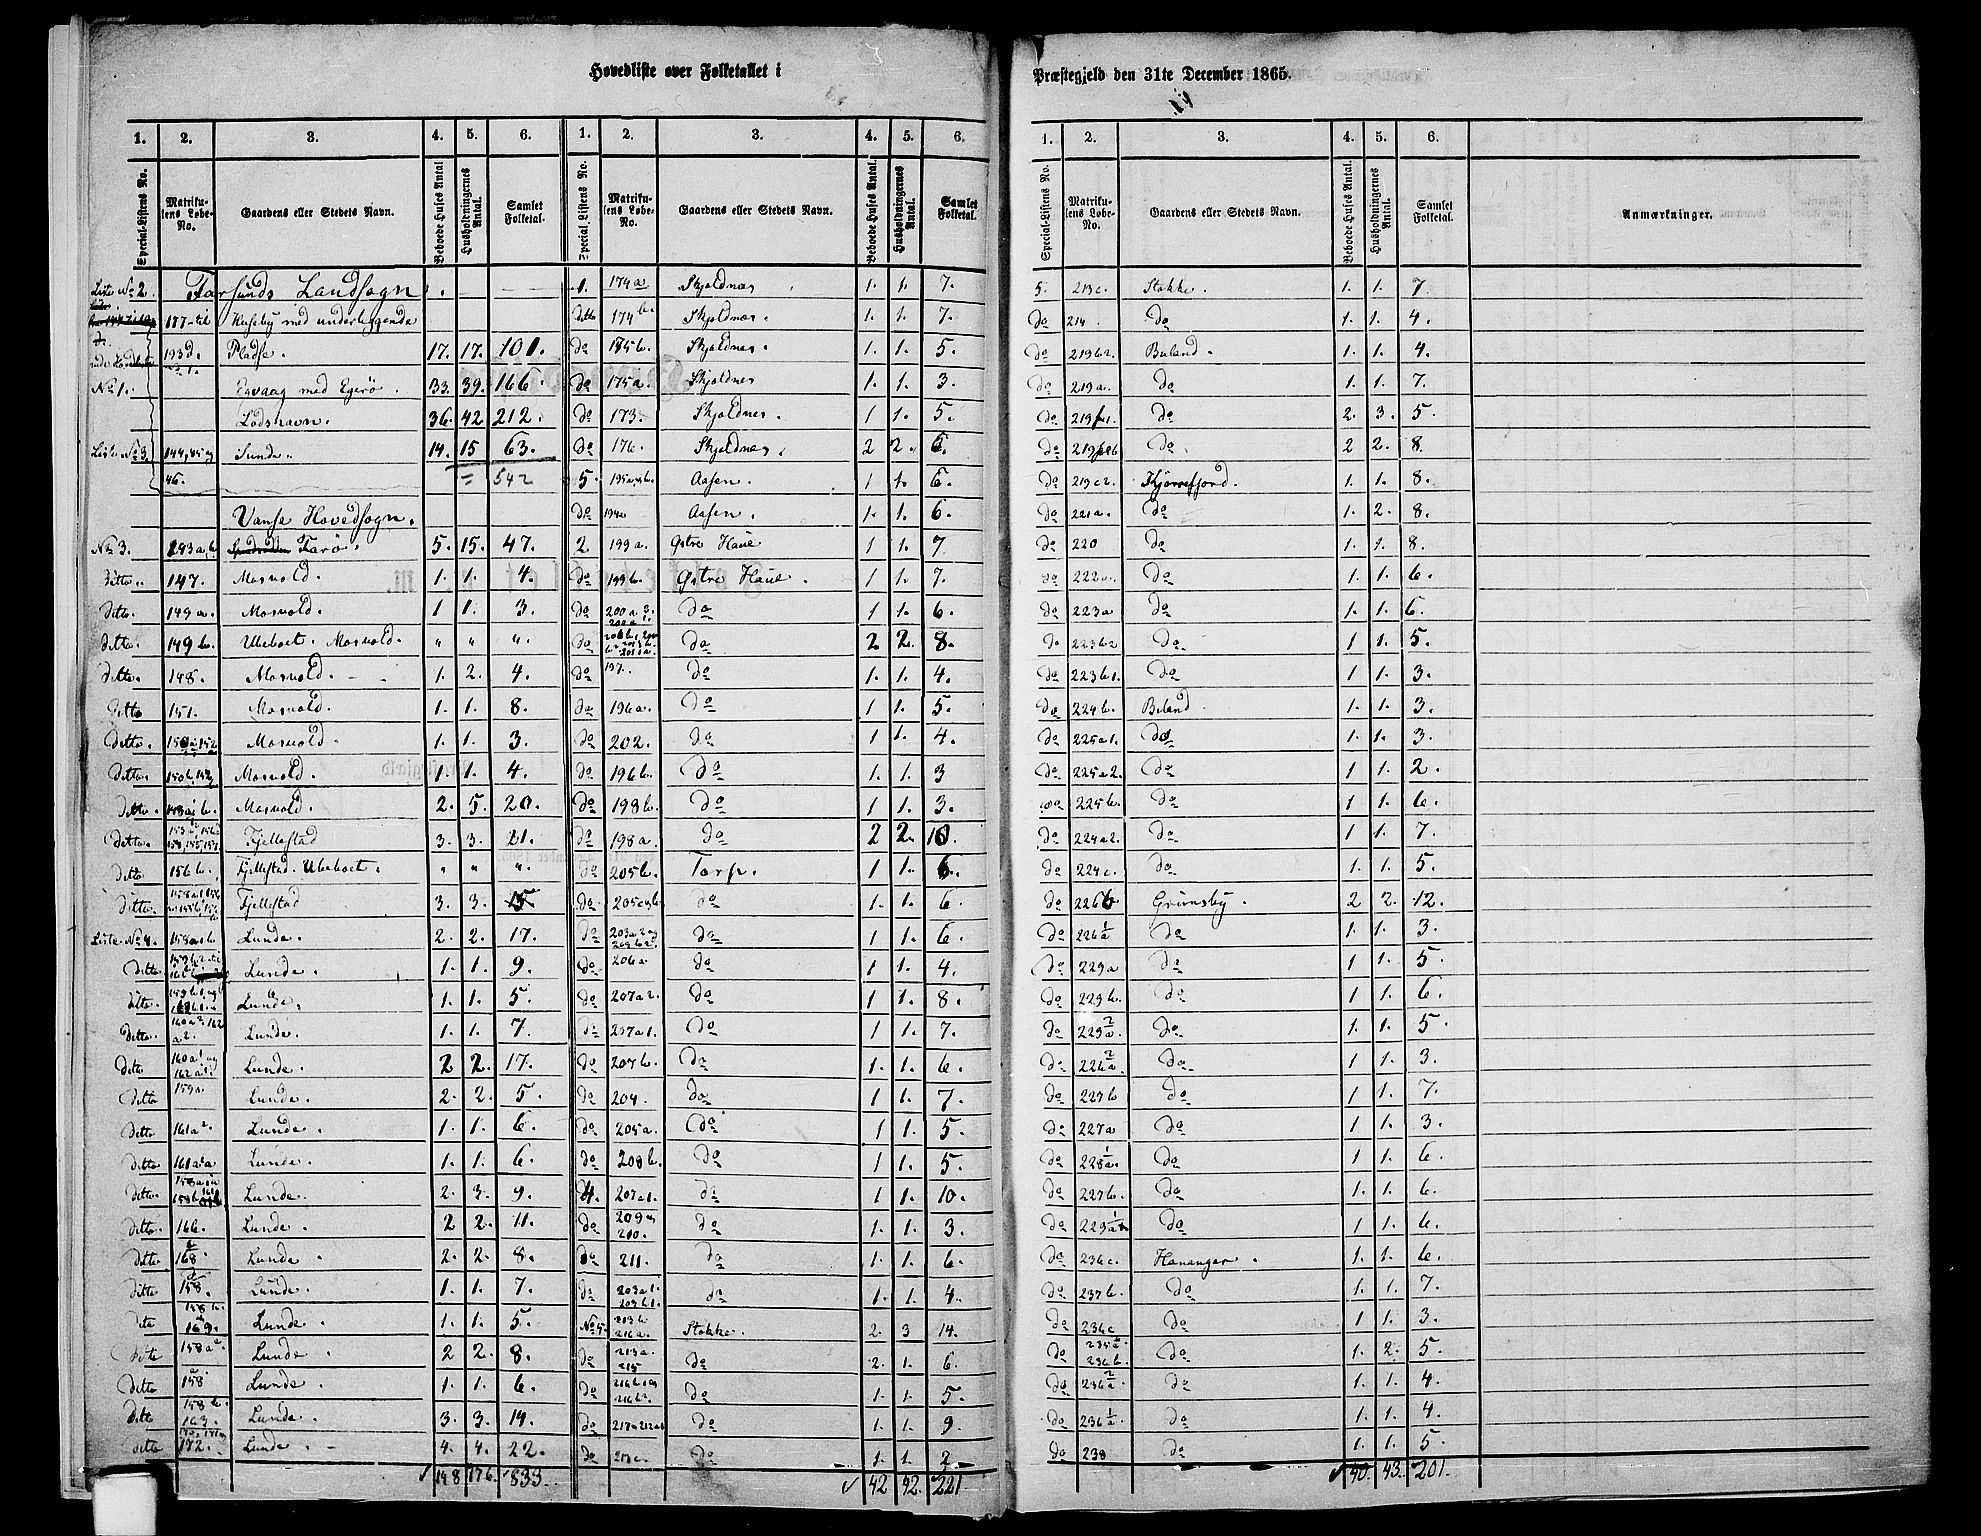 Hovedliste over Folketallet i
1. 2. 3. 4. 5. 6. 1. 2. 3. 4. 5. 6.
Special-Listens No. Matrikulens Løbe-No. Gaardens eller Stedets Navn. Beboede Huses Antal Husholdningernes Antal. Samlet Folketal. Special Listens No. Matrikulens Løbe-No. Gaardens eller Stedets Navn. Beboede Huses Antal. Husholdningernes Antal. Samlet Folketal.
Liste No 2. Farsunds Landsogn 1. 174a Skjoldnæs 1. 1. 7.
177-til Huseby med underliggende ditto 174b. Skjoldnæs. 1. 1. 7.
193d. Pladse. 17. 17. 101. do 175b. Skjoldnæs. 1 1. 5.
No 1. Egvaag med Egerö. 33. 39. 166. do 175a. Skjoldnes 1. 1 3.
Lodshavn. 36. 42 212. do 173. Skjoldnes. 1 1. 5.
Liste No 3. Sunde. 14. 15 63. do 176. Skjoldnes. 2 2. 6.
46. 542 5. Aasen. 1 1. 6.
Vanse Hovedsogn. do 194a Aasen. 1. 1. 6.
No 3. 143a,b. Farö. 5. 15. 47. 2 199a. Østre Haue 1 1 7
Ditto. 147. Mosvold. 1. 1. 4. do 199b. Østre Haue. 1 1. 7.
Ditto. 149a. Mosvold. 1 1. 3. do 200a2. 200a1. do 1 1. 6.
Ditto. 149b. Ubeboet. Mosvold. " " " do do 2 2. 8.
Ditto. 148. Mosvold. 1. 2. 4. do 197. do 1 1. 4.
Ditto 151. Mosvold. 1. 1. 8. do 196a. do 1 1. 5.
Ditto. Mosvold. 1. 1. 3. do 202. do 1 1. 4.
Ditto. Mosvold. 1. 1. 4. do 196b. do 1. 1. 3
Ditto. Mosvold. 2. 5. 20. do 198b. do 1 1. 3.
Ditto. Fjellestad 3. 3. 21. do 198a. do 2 2. 10.
Ditto 156b. Fjellestad. Ubeboet. " " " do 205b. Torp. 1 1. 6.
Ditto. Fjellestad 3. 3. 15 do do 1. 1. 6.
Liste No 4. Lunde. 2. 2. 17. do 203a2 og do 1 1. 6.
Ditto Lunde. 1. 1. 9. do 206a. do 1 1. 4.
Ditto. Lunde. 1. 1. 5. do 207a2. do 1 1. 8.
Ditto. 160a2. 162 a2. Lunde. 1. 1. 7. do 207a1. do 1 1. 7.
Ditto 160a1 og 162a1. Lunde. 2 2. 17. do 207b. do 1 1. 6.
Ditto 159a Lunde. 2. 2. 5. do 204. do 1 1. 7.
Ditto 161a2. Lunde. 1. 1. 6. do 205a. do 1 1. 5.
Ditto Lunde. 1. 1. 6. do 208b. do 1 1. 5.
Ditto. Lunde. 2. 3. 9. 4. 207a1. do 1 1. 10.
Ditto. 166. Lunde. 2 2. 11. do 209 og 210. do 1. 1. 3.
Ditto 168. Lunde 2. 2. 8. do 211. do 1 1. 6.
Ditto 158. Lunde. 1 1. 7. do do 1. 1. 4.
Ditto 169. Lunde. 1. 1. 5. No 5. 213b 216a. Stokke. 2. 3 14.
Ditto 158a. Lunde. 2 2. 8. do 213a. 215 do 2. 1. 6.
Ditto 158 Lunde. 1. 1. 6. do do 1 1. 5.
Ditto 158b. 163. Lunde. 3. 3. 14. do do 1 1. 9.
Ditto 172. Lunde. 4. 4. 22. do do 1. 1 2.
148 176. 833. 42 42. 221
Præstegjeld den 31te December 1865.
1. 2. 3. 4. 5. 6.
Special-Listens No. Matrikulens Løbe-No. Gaardens eller Stedets Navn. Beboede Huses Antal. Husholdningernes Antal. Samlet Folketal. Anmærkninger.
5. 213c. Stokke. 1. 1. 7.
do 214. do 1. 1. 4.
do 219b2. Buland. 1. 1. 4.
do 219a. do 1. 1. 7.
do do 2. 3. 5.
do do 2 2. 8.
do 219c2. Kjörrefjord. 1. 1. 8.
do 221a. do 1. 2. 8.
do 220 do 1 1. 8.
do 222a. do 1 1. 6.
do 223a do 1. 1. 6.
do 223b2 do 1 1. 5.
do 223b1. do 1. 1. 3.
do 224b. Buland 1. 1. 3.
do 225a1. do 1. 1. 3.
do 225a2. do 1 1. 2.
do 225b. do 1 1. 6.
do 224a2. do 1 1. 7.
do 224c. do 1. 1. 5.
do 226b Grimsby. 2 2. 12.
do 226a do 1. 1. 3.
do 229a do 1 1. 5.
do 229b. do 1 1. 6.
do 229a. do 1. 1. 5.
do 226a. do 1. 1. 3.
do 227b do 1 1. 7.
do 227a do 1 1. 3.
do 228a. do 1 1. 6.
do 227b. do 1. 1. 6.
do 229a do 1 1. 6.
do 236c. Hananger. 1. 1. 6.
do 237b. do 1. 1. 7.
do 236c do 1. 1. 3.
do 235a 236b. do 1. 2. 5.
do 236a do 1. 1. 4.
do 236a. do 1. 1. 4.
do 238 do 1. 1. 5.
40. 43. 201.